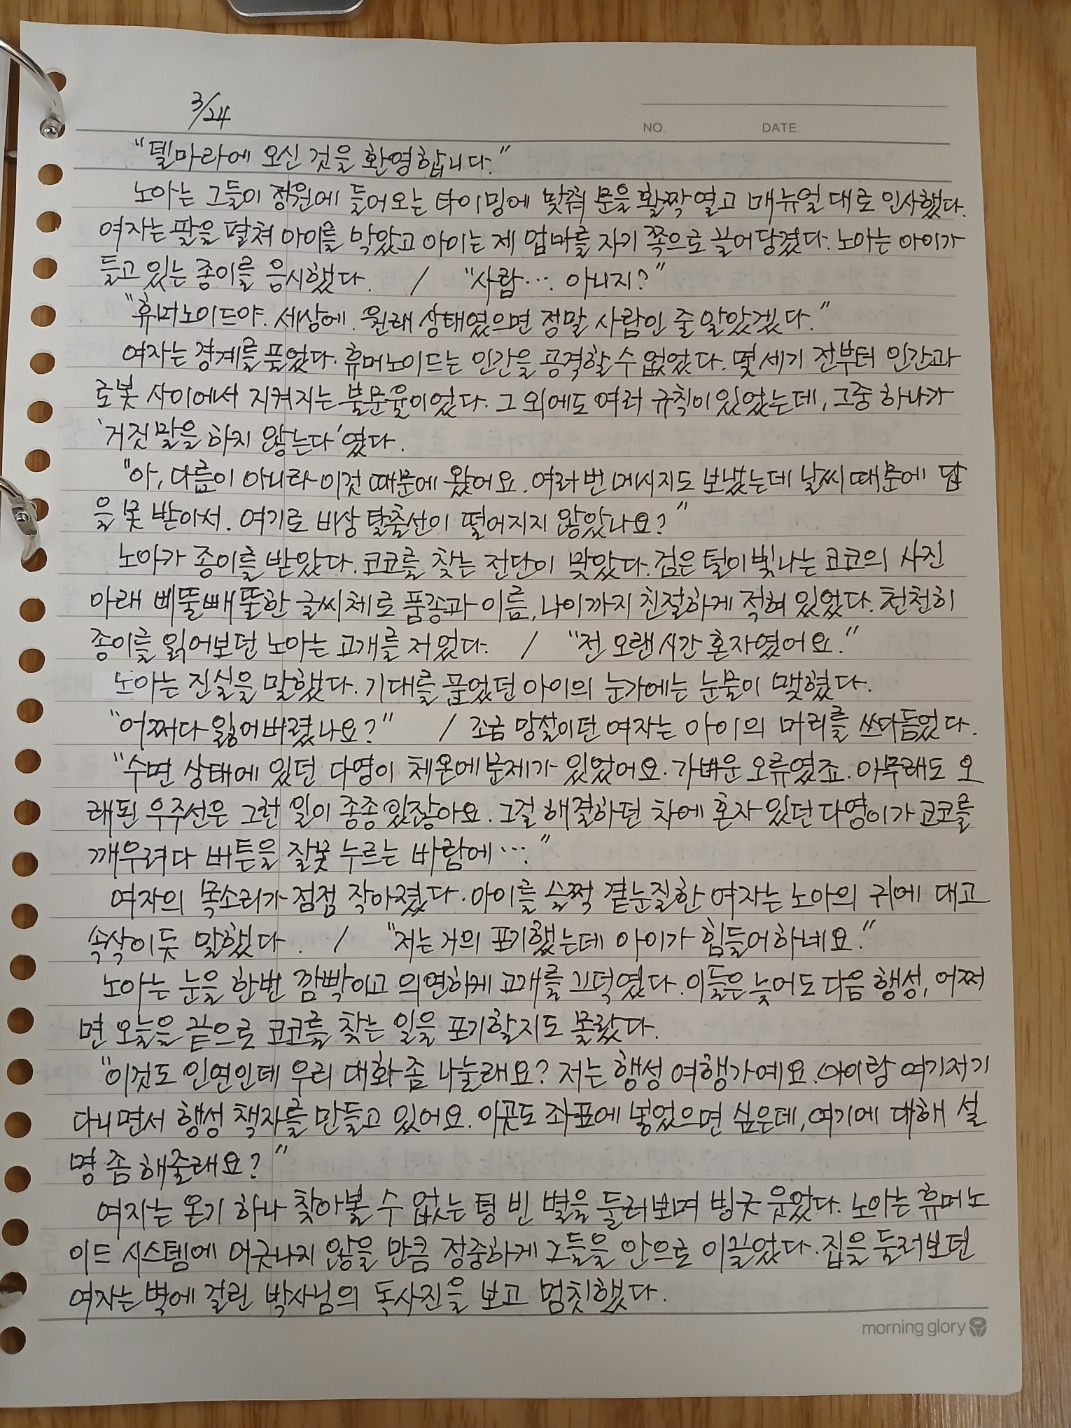 3/24
NO.
DATE.
"델마라에 오신 것을 환영합니다."
노아는 그들이 정원에 들어오는 타이밍에 맞춰 문을 활짝 열고 매뉴얼 대로 인사했다.
여자는 팔을 펼쳐 아이를 막았고 아이는 제 엄마를 자기 쪽으로 끌어당겼다. 노아는 아이가
들고 있는 종이를 응시했다. / "사람… 아니지?"
"휴머노이드야. 세상에. 원래 상태였으면 정말 사람인 줄 알았겠다."
여자는 경계를 풀었다. 휴머노이드는 인간을 공격할 수 없었다. 몇 세기 전부터 인간과
로봇 사이에서 지켜지는 불문율이었다. 그 외에도 여러 규칙이 있었는데, 그중 하나가
'거짓말을 하지 않는다'였다.
"아, 다름이 아니라 이것 때문에 왔어요. 여러 번 메시지도 보냈는데 날씨 때문에 답
을 못 받아서. 여기로 비상 탈출선이 떨어지지 않았나요?"
노아가 종이를 받았다. 코코를 찾는 전단이 맞았다. 검은 털이 빛나는 코코의 사진
아래 삐뚤빼뚤한 글씨체로 품종과 이름, 나이까지 친절하게 적혀 있었다. 천천히
종이를 읽어보던 노아는 고개를 저었다. / "전 오랜 시간 혼자였어요."
노아는 진실을 말했다. 기대를 품었던 아이의 눈가에는 눈물이 맺혔다.
"어쩌다 잃어버렸나요?" / 조금 망설이던 여자는 아이의 머리를 쓰다듬었다.
"수면 상태에 있던 다영이 체온에 문제가 있었어요. 가벼운 오류였죠. 아무래도 오
래된 우주선은 그런 일이 종종 있잖아요. 그걸 해결하던 차에 혼자 있던 다영이가 코코를
깨우려다 버튼을 잘못 누르는 바람에…"
여자의 목소리가 점점 작아졌다. 아이를 슬쩍 곁눈질한 여자는 노아의 귀에 대고
속삭이듯 말했다. / "저는 거의 포기했는데 아이가 힘들어하네요."
노아는 눈을 한번 깜빡이고 의연하게 고개를 끄덕였다. 이들은 늦어도 다음 행성, 어쩌
면 오늘을 끝으로 코코를 찾는 일을 포기할지도 몰랐다.
"이것도 인연인데 우리 대화 좀 나눌래요? 저는 행성 여행가예요. 아이랑 여기저기
다니면서 행성 책자를 만들고 있어요. 이곳도 좌표에 넣었으면 싶은데, 여기에 대해 설
명 좀 해줄래요?"
여자는 온기 하나 찾아볼 수 없는 텅 빈 별을 둘러보며 빙긋 웃었다. 노아는 휴머노
이드 시스템에 어긋나지 않을 만큼 정중하게 그들을 안으로 이끌었다. 집을 둘러보던
여자는 벽에 걸린 박사님의 독사진을 보고 멈칫했다.
morning glory